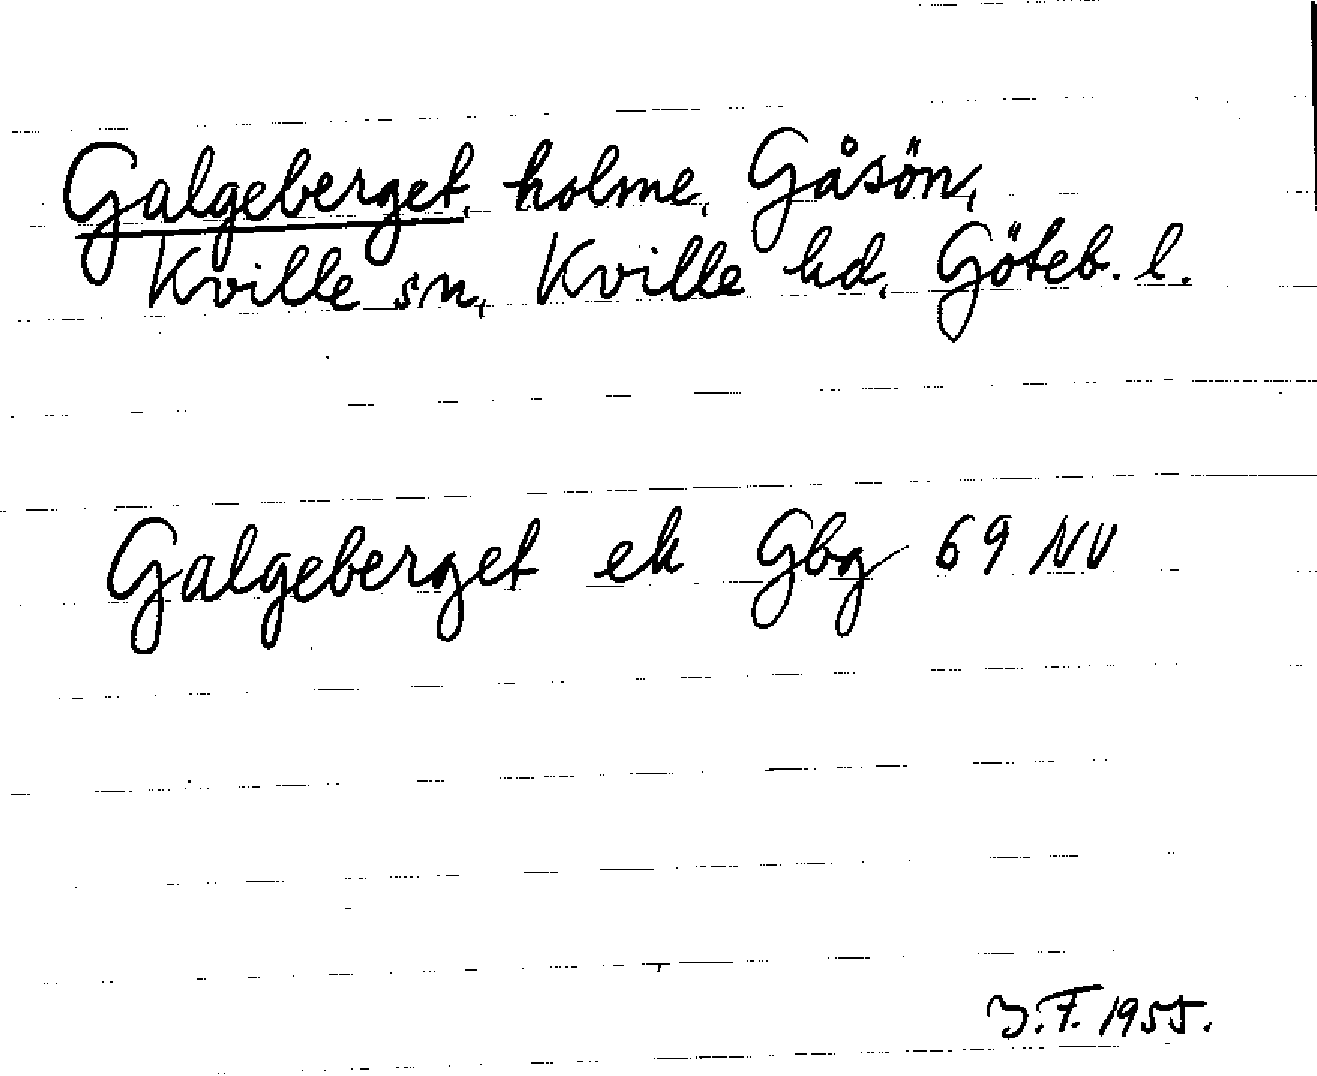 Galgeberget, holme, Gåsön,
Kville sn, Kville hd, Göteb. l.
Galgeberget ek Gbg 69 NV
J.F. 1955.